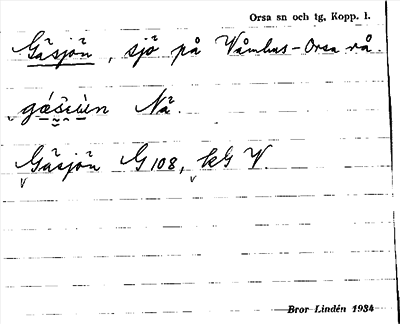 Orsa sn och tg, Kopp. l.
Gåsjön, sjö på Våmhus-Orsa rå.
Nå.
Gåsjön G 108, kG V.
Bror Lindén 1934